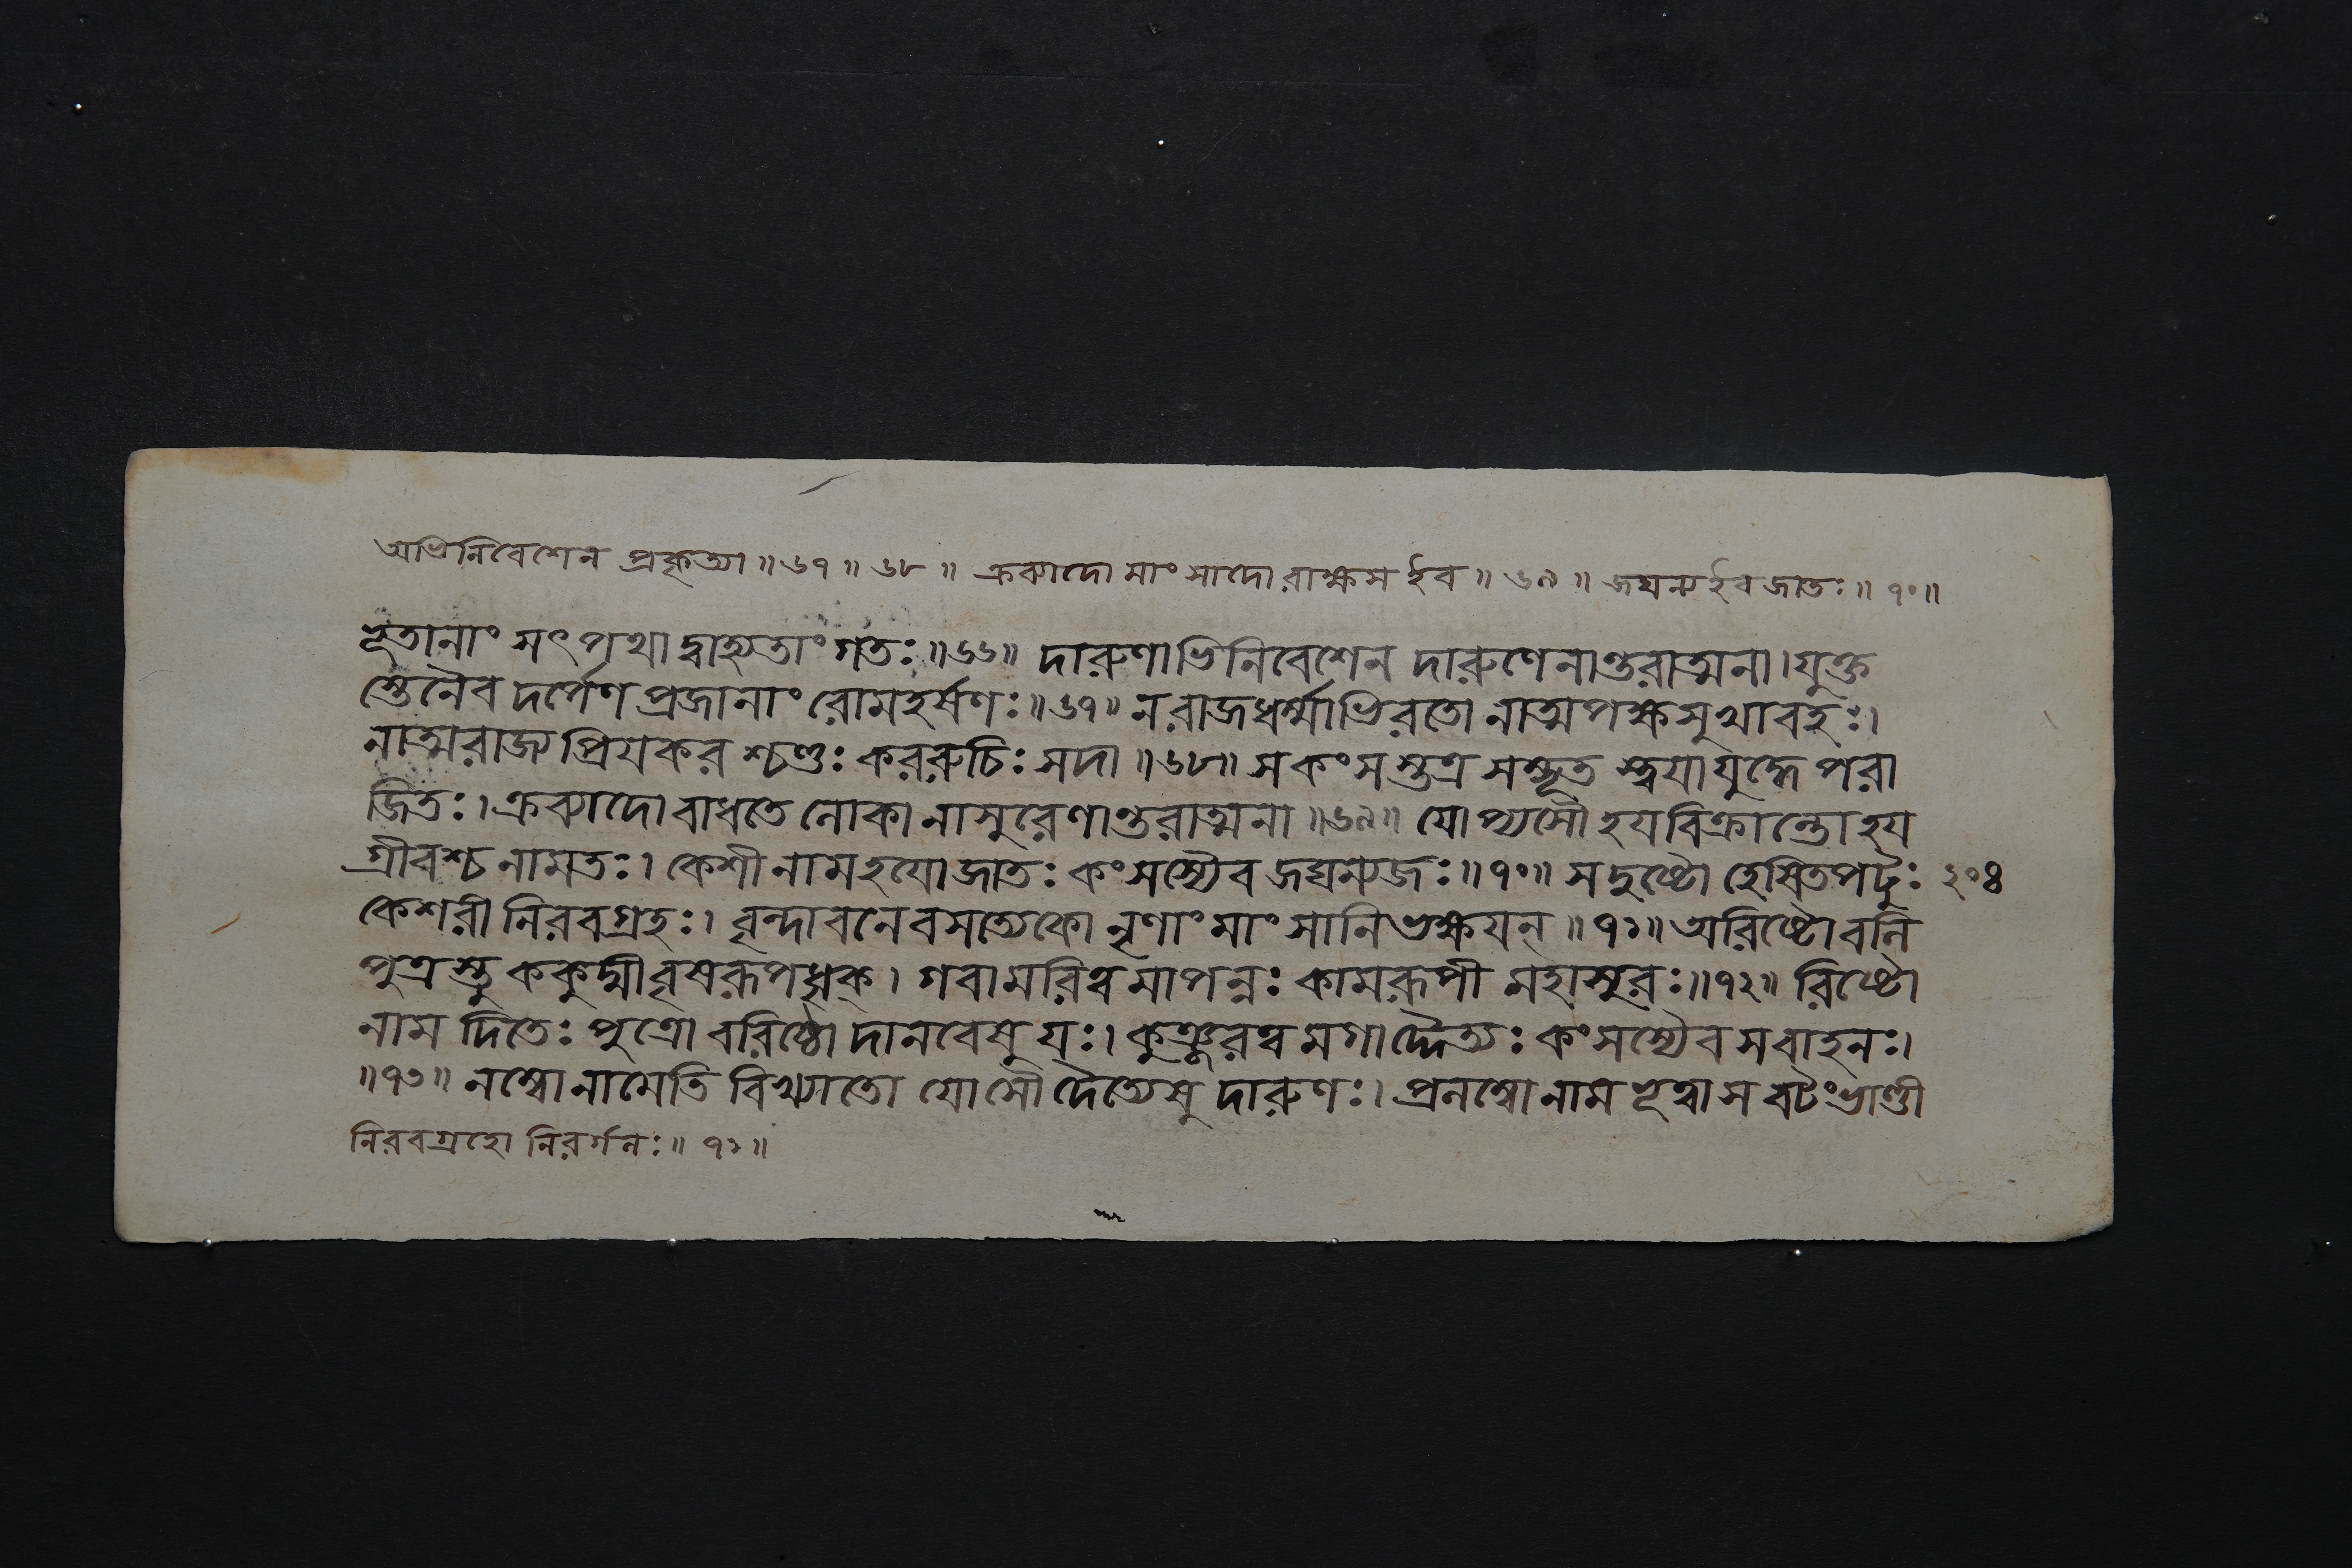 অভিনিবেশেন প্রকৃত্যা ॥ ৬৭ ॥ ৬৮ ॥ ক্রব্যাদো মাংসাদো রাক্ষস ইব ॥ ৬৯ ॥ জঘন্য ইব জাতঃ ॥ ৭০ ॥
ভূতানাং সৎপথাদ্বাহ্যতাং গতঃ ॥ ৬৬ ॥ দারুণাভিনিবেশেন দারুণেনান্তরাত্মনা । যুক্ত
স্তেনৈব দর্পেণ প্রজানাং রোমহর্ষণঃ ॥ ৬৭ ॥ ন রাজধর্ম্মাভিরতো নাত্মপক্ষসুখাবহঃ ।
নাত্মরাজ্যপ্রিয়কর শ্চণ্ডঃ কররুচিঃ সদা ॥ ৬৮ ॥ স কংসস্তত্র সম্ভূত স্ত্বয়া যুদ্ধে পরা
জিতঃ । ক্রব্যাদো বাধতে লোকানাসুরেণান্তরাত্মনা ॥ ৬৯ ॥ যোপ্যসৌ হয়বিক্রান্তো হয়
গ্রীবশ্চ নামতঃ । কেশী নাম হয়ো জাতঃ কংসস্যৈব জঘন্যজঃ ॥ ৭০ ॥ স দুষ্টো হেষিতপটুঃ ২০৪
কেশরী নিরবগ্রহঃ । বৃন্দাবনে বসত্যেকো নৃণাং মাংসানি ভক্ষয়ন্ ॥ ৭১ ॥ অরিষ্টো বলি
পুত্রস্তু ককুদ্মী বৃষরূপধৃক্ । গবামরিত্বমাপন্নঃ কামরূপী মহাসুরঃ ॥ ৭২ ॥ রিষ্টো
নাম দিতেঃ পুত্রো বরিষ্ঠো দানবেষু যঃ । কুঞ্জরত্বমগাদ্দৈত্যঃ কংসস্যৈব স বাহনঃ ।
॥ ৭৩ ॥ লম্বো নামেতি বিখ্যাতো যোসৌ দৈত্যেষু দারুণঃ । প্রলম্বো নাম ভূত্বা স বটং ভাণ্ডী
নিরবগ্রহো নিরর্গলঃ ॥ ৭১ ॥